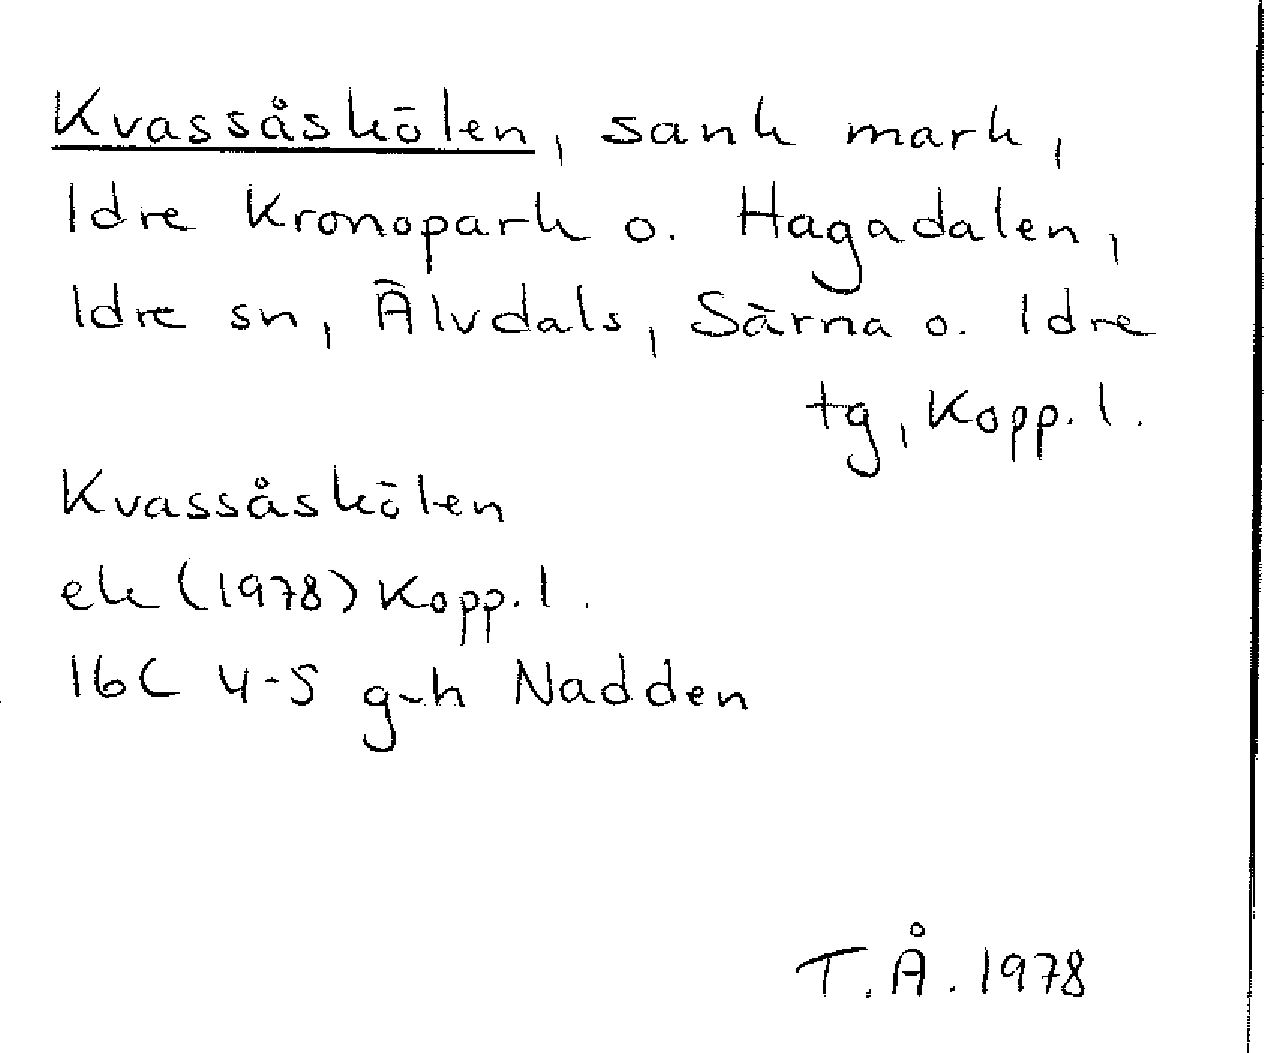 Kvassåskölen, sank mark,
Idre Kronopark o. Hagadalen,
Idre sn, Älvdals, Särna o. Idre
tg, Kopp. l.
Kvassåskölen
ek (1978) Kopp. l.
16C 4-5 g-h Nadden
T. Å. 1978